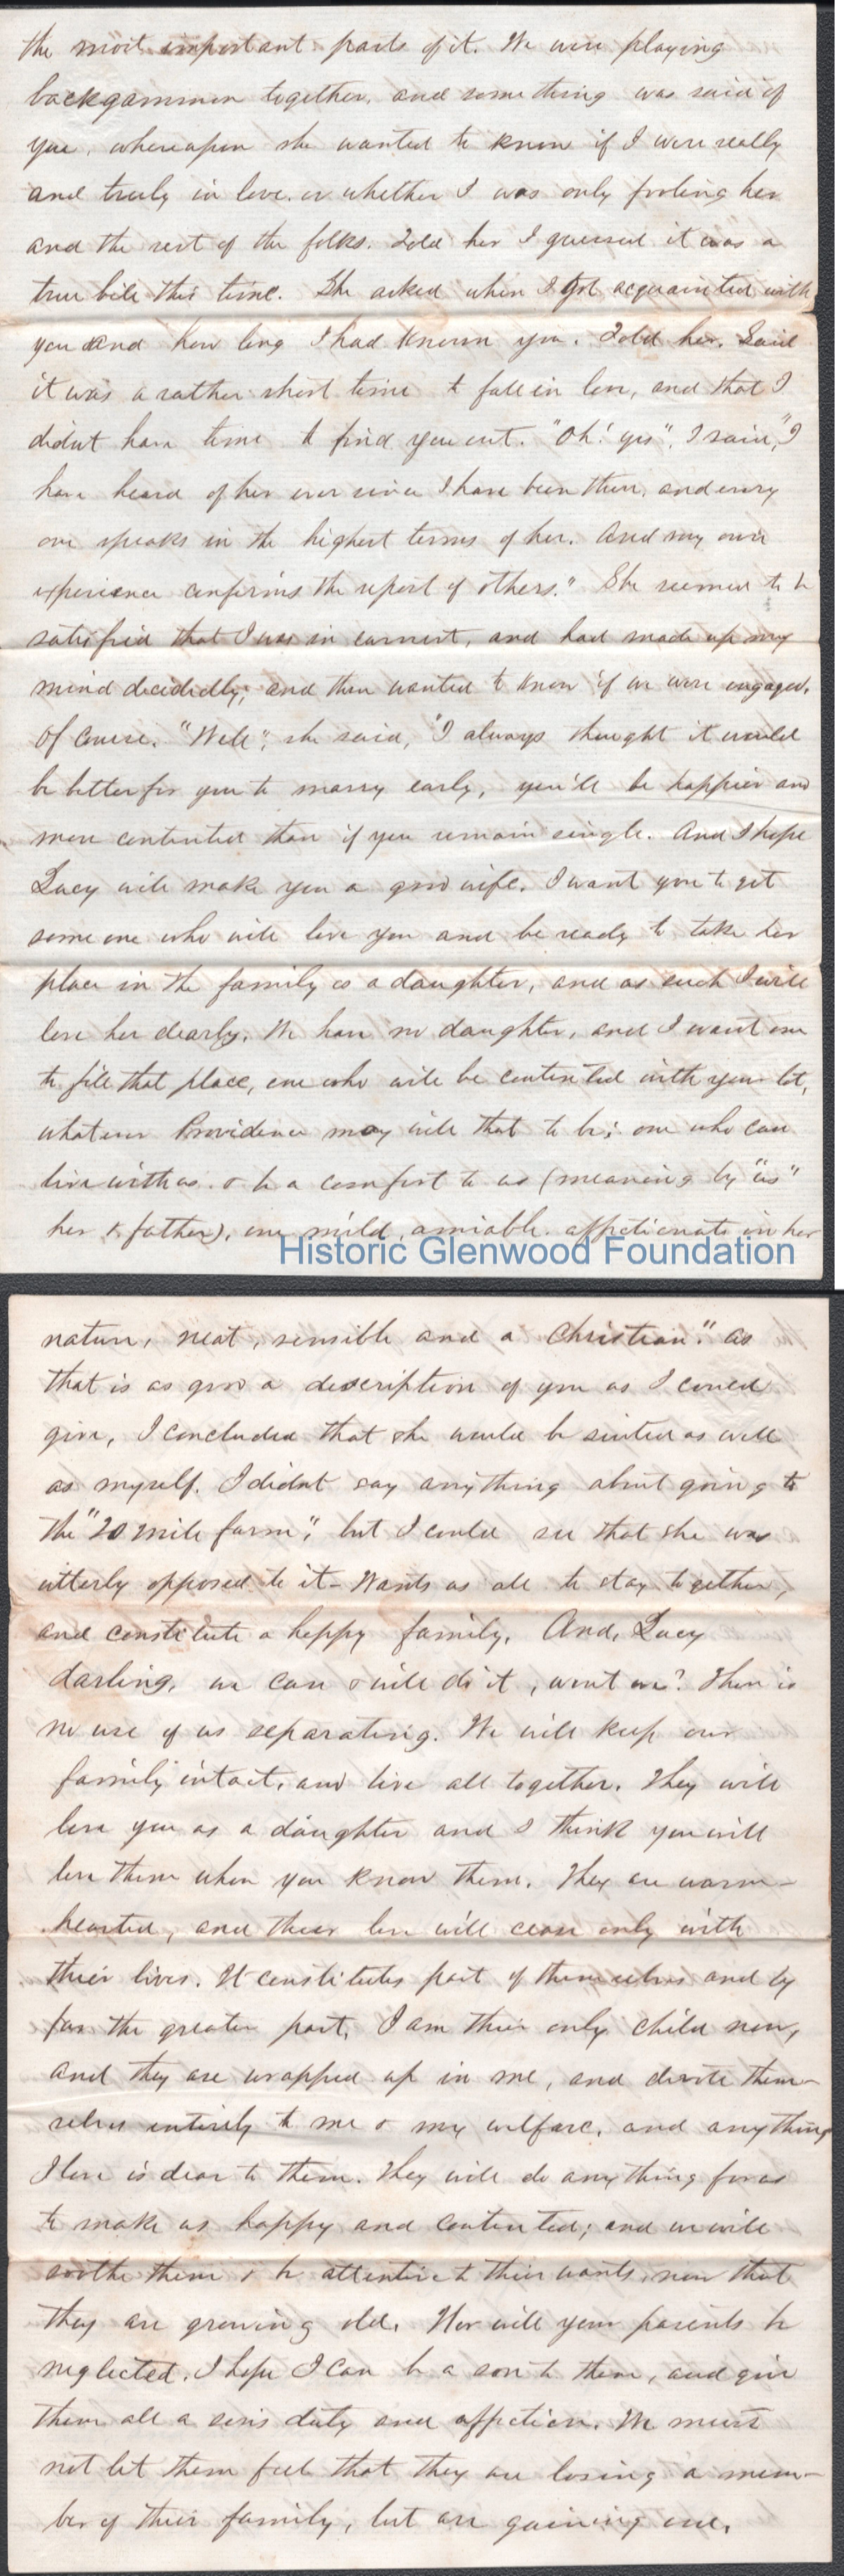 the most important parts of it. We were playing
backgammon together, and something was said of
you, whereupon she wanted to know if I were really
and truly in love, or whether I was only fooling her
and the rest of the folks. Told her I guessed it was a
true bile this time. She asked when I got acquainted with
you and how long I had known you. Told her. Said
it was a rather short time to fall in love, and that I
didnt have time to find you out. "Oh! yes", I said, "I
have heard of her ever since I have been there, and every
one speaks in the highest terms of her. And my own
experience confirms the report of others." She seemed to be
satisfied that I was in earnest, and had made up my
mind decidedly; and then wanted to know if we were engaged.
Of course. "Well", she said, "I always thought it would
be better for you to marry early, you'll be happier and
more contented than if you remain single. And I hope
Lucy will make you a good wife. I want you to get
some one who will love you and be ready to take her
place in the family as a daughter, and as such I will
love her dearly. We have no daughter, and I want one
to fill that place, one who will be contented with your lot,
whatever Providence may will that to be; one who can
live with us & be a comfort to us (meaning by "us"
her & father), one mild, amiable, affectionate in her
Historic Glenwood Foundation
nature, neat, sensible and a Christian." As
that is as good a description of you as I could
give, I concluded that she would be suited as well
as myself. I didnt say anything about going to
the "20 mile farm", but I could see that she was
utterly opposed to it - Wants us all to stay together,
and constitute a happy family. And, Lucy
darling, we can & will do it, wont we? There is
no use of us separating. We will keep our
family intact, and live all together. They will
love you as a daughter and I think you will
love them when you know them. They are warm-
hearted, and their love will cease only with
their lives. It constitutes part of themselves and by
far the greater part. I am their only child now,
and they are wrapped up in me, and devote them-
selves entirely to me & my welfare, and anything
I love is dear to them. They will do anything for us
to make us happy and contented; and we will
soothe them & be attentive to their wants, now that
they are growing old. Nor will your parents be
neglected. I hope I can be a son to them, and give
them all a son's duty and affection. We must
not let them feel that they are losing a mem-
ber of their family, but are gaining one.